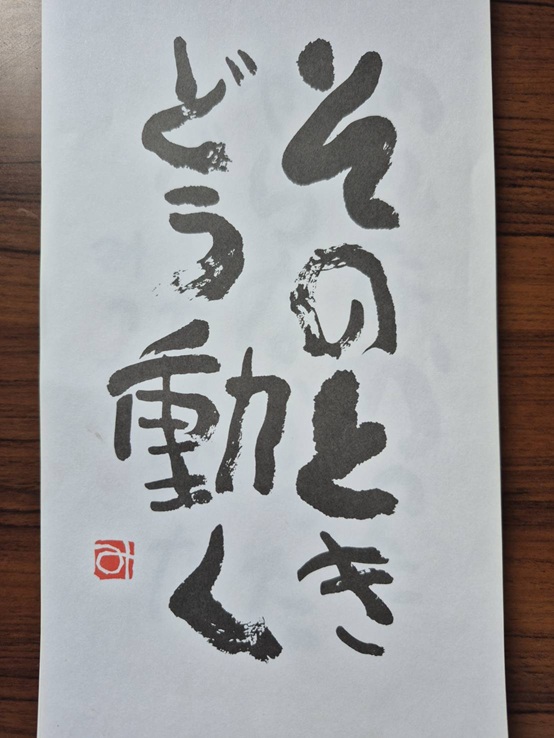 そのとき
どう動く
み